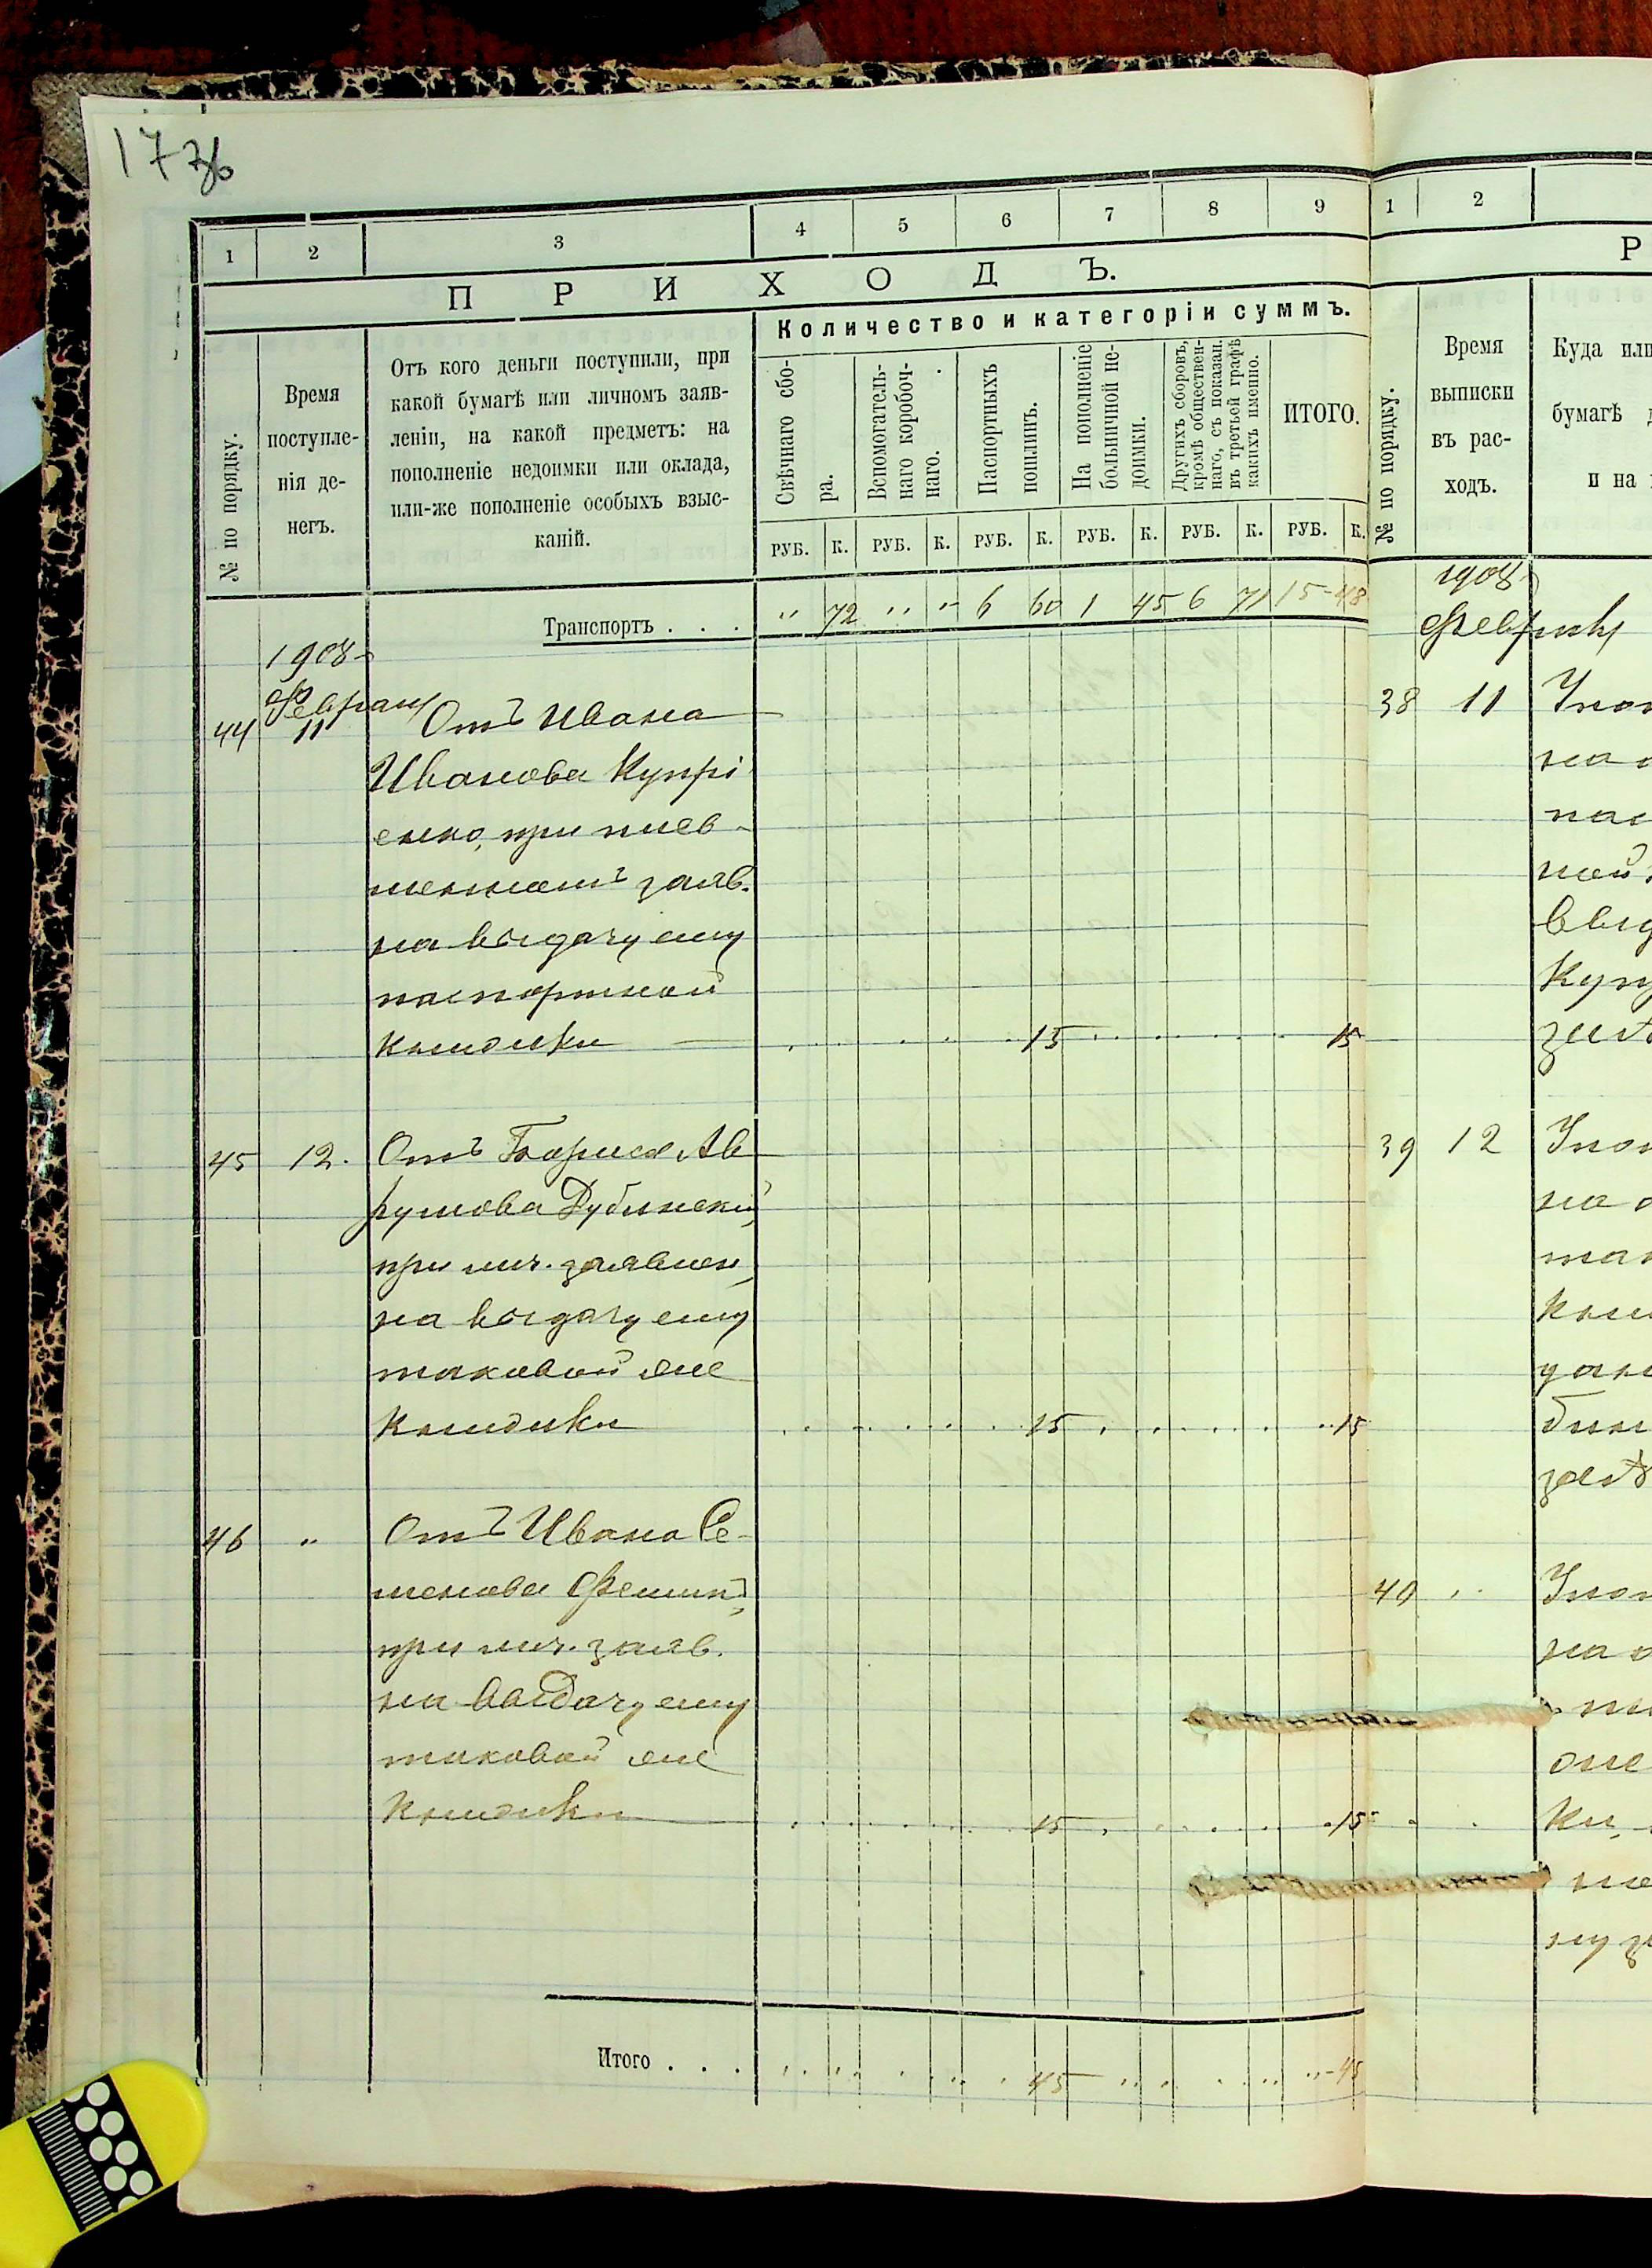 1736
1 2 3 4 5 6 7 8 9
ПРИХОДЪ.
№ по порядку.
Время
поступле-
нія де-
негъ.
Отъ кого деньги поступили, при
какой бумагѣ или личномъ заяв-
леніи, на какой предметъ: на
пополненіе недоимки или оклада,
или-же пополненіе особыхъ взыс-
каній.
Количество и категоріи суммъ.
Свѣчнаго сбо-
ра.
Вспомогатель-
наго коробоч-
наго.
Паспортныхъ
пошлинъ.
На пополненіе
больничной не-
доимки.
Другихъ сборовъ,
кромѣ обществен-
наго, съ показан.
въ третьей графѣ
какихъ именно.
ИТОГО.
РУБ. К. РУБ. К. РУБ. К. РУБ. К. РУБ. К. РУБ. К.
Транспортъ . . . " 72 " " 6 60 1 45 6 71 15 48
1908
Февраля
44 11 Отъ Ивана
Иванова Купрі
енко, при пись-
менномъ заяв.
на выдачу ему
паспортной
книжки 15 15
45 12. Отъ Бориса Ав
румова Дубинскій,
при лич. заявлен,
на выдачу ему
таковой же
книжки 15 15
46 " Отъ Ивана Се-
менова
при лич. заяв.
на выдачу ему
таковой же
книжки 15 15
Итого . . . 45 45
1 2
Р
№ по порядку.
Время
выписки
въ рас-
ходъ.
Куда или
бумагѣ
и на
1908
Февраля
38 11
Выд
Куп
39 12
на
так
кни
40 "
ки,